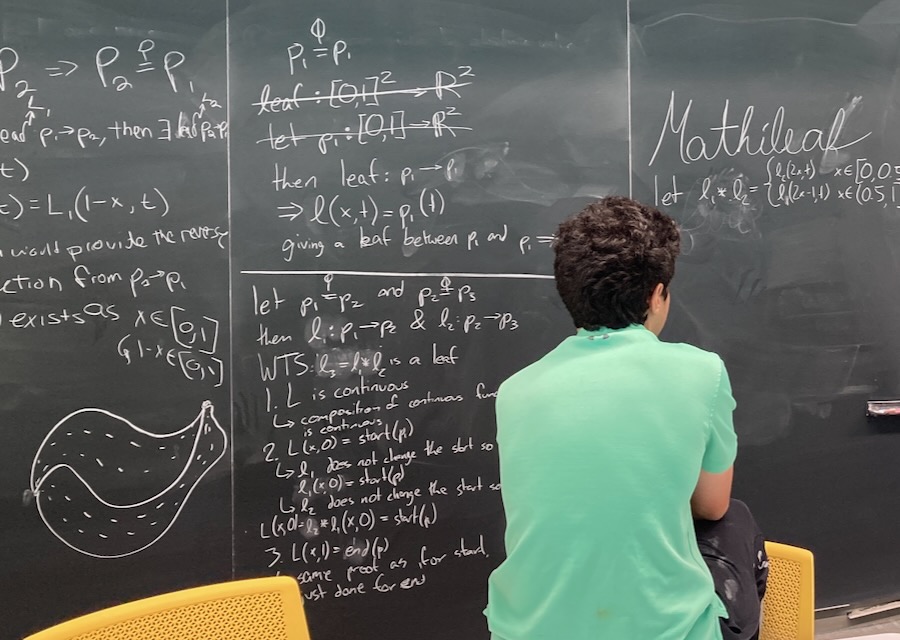 P₂ => P₂ ≝ P₁
p₁→p₂, then ∃ leaf p₂ p₁
t)
t) = L₁(1-x, t)
would provide the reverse
ction from p₂→p₁
exists as x∈[0,1]
& 1-x∈[0,1]
p₁ ≝ p₁
leaf : [0,1]² → ℝ²
let p₁ : [0,1] → ℝ²
then leaf : p₁ → p₁
⇒ l(x,t) = p₁(t)
giving a leaf between p₁ and p₁ =
let p₁ = p₂ and p₂ = p₃
then l₁: p₁→p₂ & l₂: p₂→p₃
WTS: l₃ = l₁*l₂ is a leaf
1. L is continuous
↳ composition of continuous func
is continuous
2. L(x,0) = start(p)
↳ l₁ does not change the start so
l₁(x,0) = start(p)
↳ l₂ does not change the start so
L(x,0) = l₂*l₁(x,0) = start(p)
3. L(x,1) = end(p)
same proof as for start,
just done for end
Mathileaf
let l₁*l₂ = { l₂(2x,t) x∈[0,0.5
l₁(2x-1,t) x∈(0.5,1]